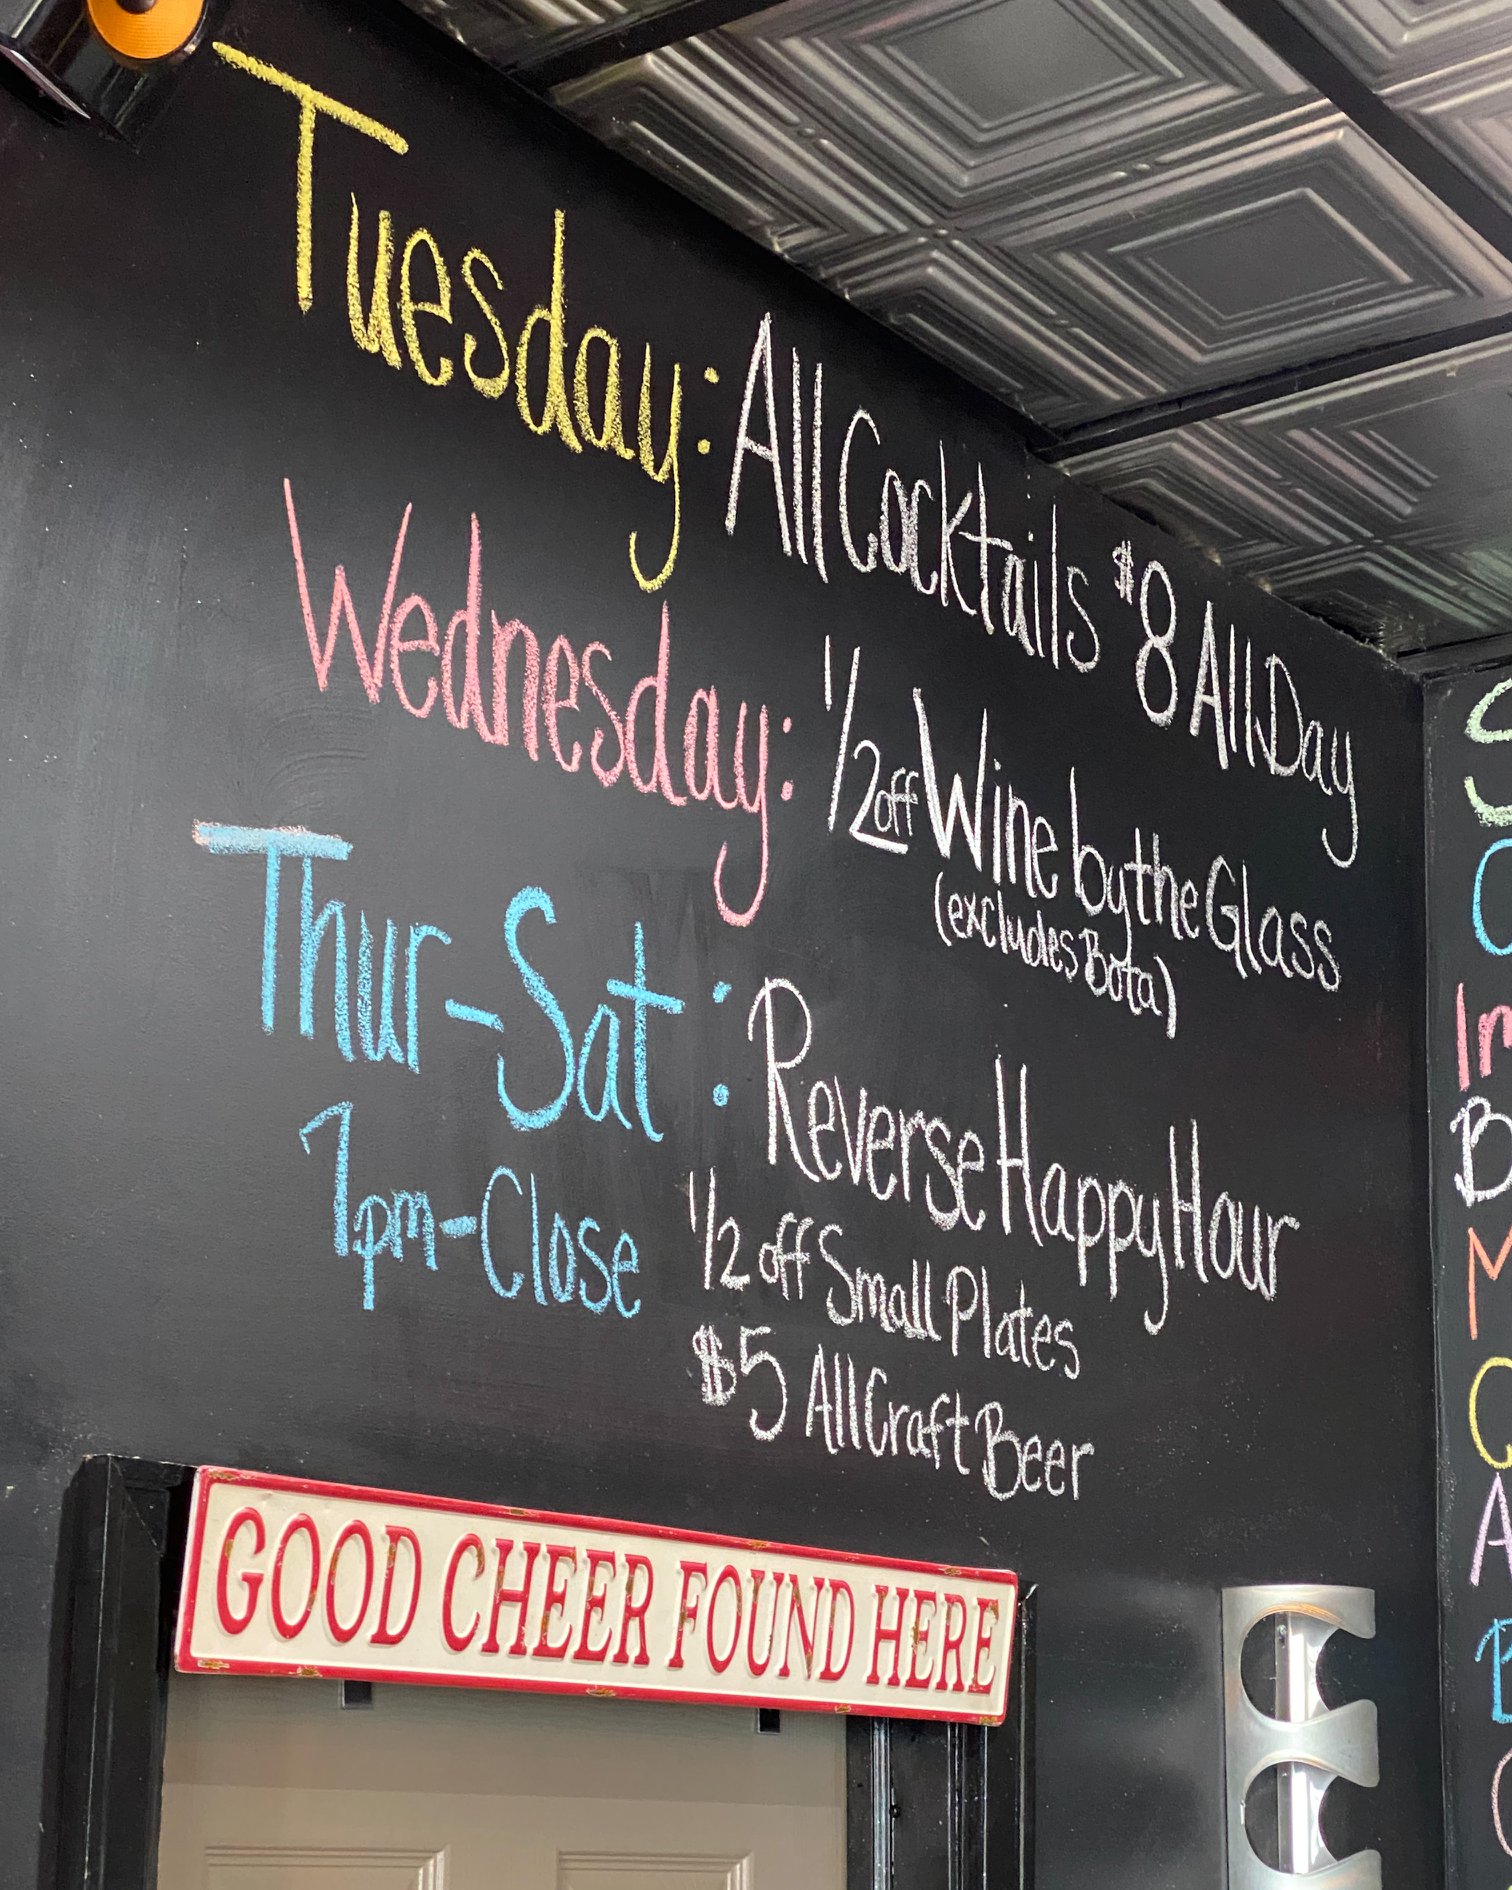 Tuesday: All Cocktails $8 All Day
Wednesday: 1/2 off Wine by the Glass
(excludes Bota)
Thur-Sat: Reverse Happy Hour
7pm-Close 1/2 off Small Plates
$5 All Craft Beer
GOOD CHEER FOUND HERE